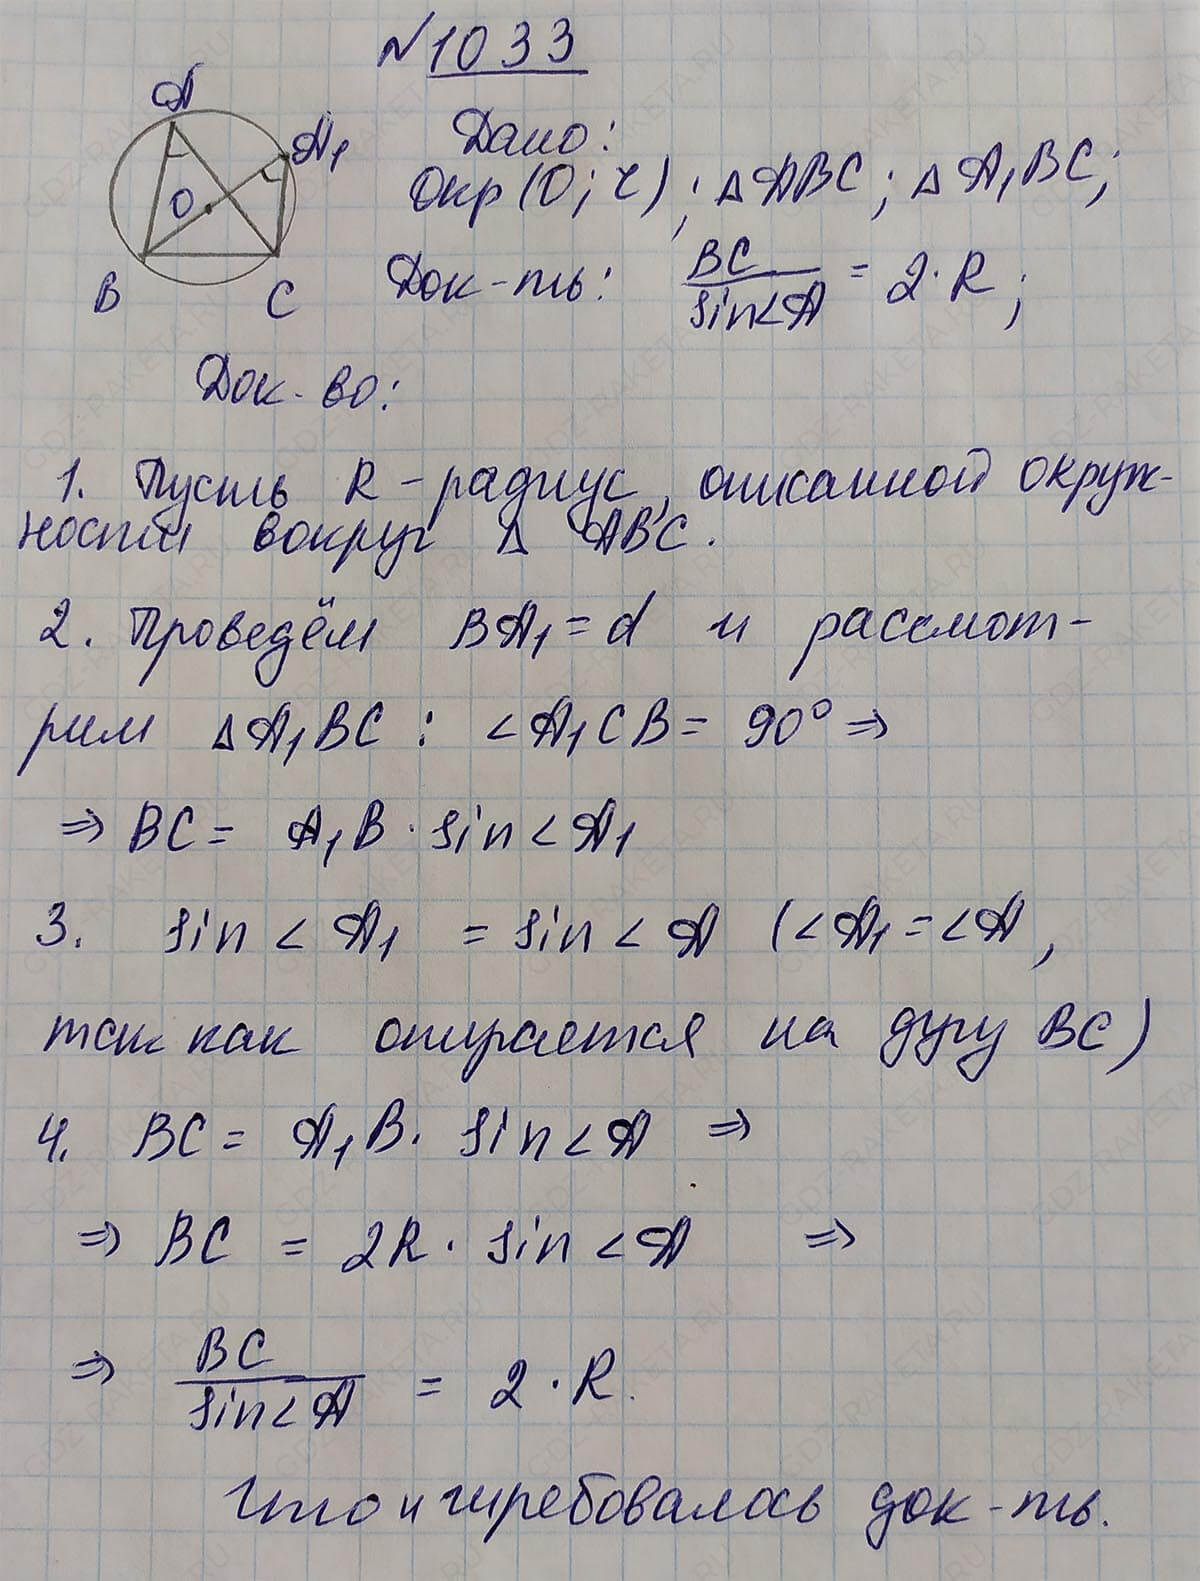 №1033
A
A₁
O
B
C
Дано:
Окр(O; r); △ABC; △A₁BC;
Док-ть: BC/sin∠A = 2·R;
Док-во:
1. Пусть R - радиус, описанной окруж-
ности вокруг △ ABC.
2. Проведём BA₁ = d и рассмот-
рим △A₁BC: ∠A₁CB = 90° ⇒
⇒ BC = A₁B · sin∠A₁
3. sin∠A₁ = sin∠A (∠A₁ = ∠A,
так как опирается на дугу BC)
4. BC = A₁B · sin∠A ⇒
⇒ BC = 2R · sin∠A ⇒
⇒ BC/sin∠A = 2 · R.
Что и требовалось док-ть.
GDZ-RAKETA.RU